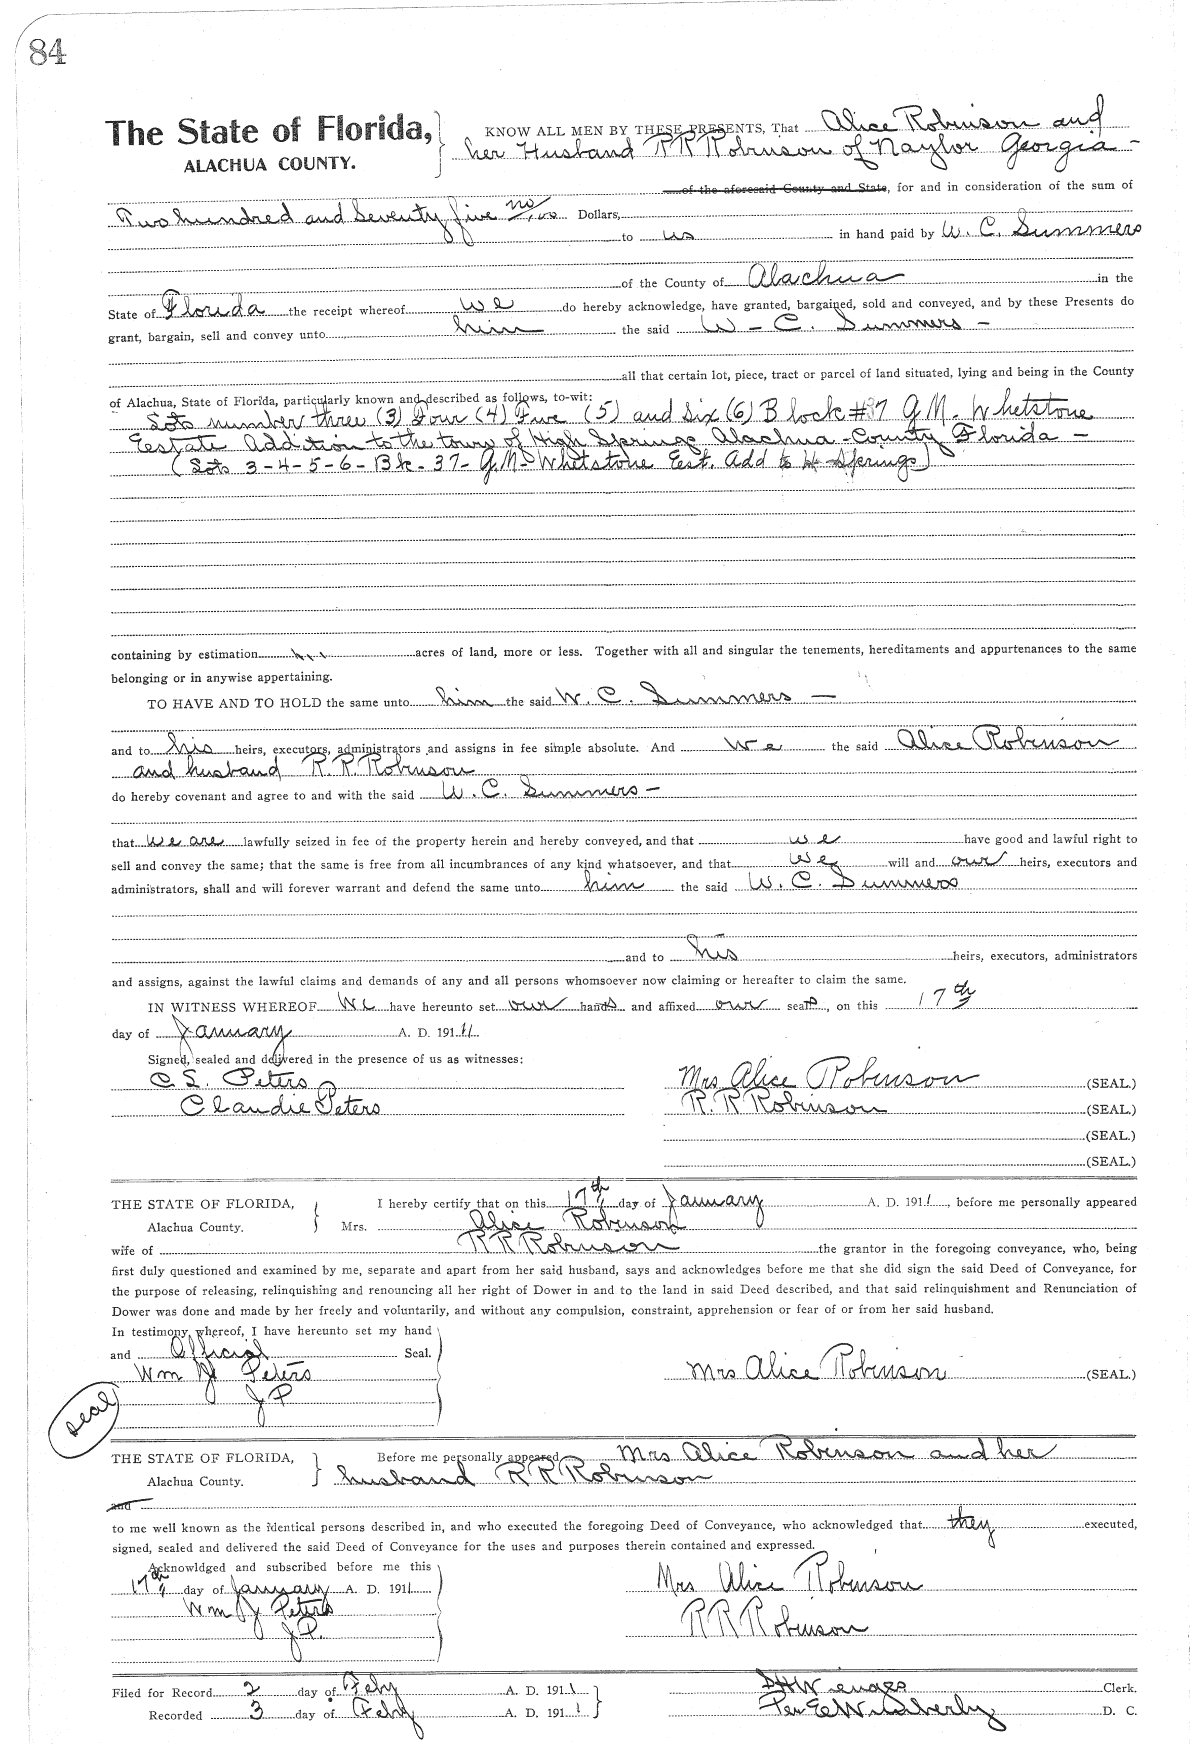 84
The State of Florida, KNOW ALL MEN BY THESE PRESENTS, That Alice Robinson and
ALACHUA COUNTY. her Husband R R Robinson of Naylor Georgia -
of the aforesaid County and State, for and in consideration of the sum of
Two hundred and Seventy five no/100 Dollars,
to us in hand paid by W. C. Summers
of the County of Alachua in the
State of Florida the receipt whereof we do hereby acknowledge, have granted, bargained, sold and conveyed, and by these Presents do
grant, bargain, sell and convey unto him the said W - C. Summers -
all that certain lot, piece, tract or parcel of land situated, lying and being in the County
of Alachua, State of Florida, particularly known and described as follows, to-wit:
Lots number three (3) Four (4) Five (5) and Six (6) Block #37 G.M. Whetstone
Eestate Addition to the town of High Springs Alachua County Florida -
(Lots 3-4-5-6-Bk-37-G.M-Whetstone Est. Add to H Springs)
containing by estimation acres of land, more or less. Together with all and singular the tenements, hereditaments and appurtenances to the same
belonging or in anywise appertaining.
TO HAVE AND TO HOLD the same unto him the said W. C. Summers -
and to his heirs, executors, administrators and assigns in fee simple absolute. And we the said Alice Robinson
and husband R. R. Robinson
do hereby covenant and agree to and with the said W. C. Summers -
that we are lawfully seized in fee of the property herein and hereby conveyed, and that we have good and lawful right to
sell and convey the same; that the same is free from all incumbrances of any kind whatsoever, and that we will and our heirs, executors and
administrators, shall and will forever warrant and defend the same unto him the said W. C. Summers
and to his heirs, executors, administrators
and assigns, against the lawful claims and demands of any and all persons whomsoever now claiming or hereafter to claim the same.
IN WITNESS WHEREOF We have hereunto set our hands and affixed our seals, on this 17th
day of January A. D. 1911
Signed, sealed and delivered in the presence of us as witnesses:
C S. Peters Mrs Alice Robinson (SEAL.)
Claudie Peters R. R Robinson (SEAL.)
(SEAL.)
(SEAL.)
THE STATE OF FLORIDA, I hereby certify that on this 17th day of January A. D. 1911, before me personally appeared
Alachua County. Mrs. Alice Robinson
wife of R R Robinson the grantor in the foregoing conveyance, who, being
first duly questioned and examined by me, separate and apart from her said husband, says and acknowledges before me that she did sign the said Deed of Conveyance, for
the purpose of releasing, relinquishing and renouncing all her right of Dower in and to the land in said Deed described, and that said relinquishment and Renunciation of
Dower was done and made by her freely and voluntarily, and without any compulsion, constraint, apprehension or fear of or from her said husband.
In testimony whereof, I have hereunto set my hand
and Official Seal.
Wm J Peters Mrs Alice Robinson (SEAL.)
J P
seal
THE STATE OF FLORIDA, Before me personally appeared Mrs Alice Robinson and her
Alachua County. husband R R Robinson
and
to me well known as the identical persons described in, and who executed the foregoing Deed of Conveyance, who acknowledged that they executed,
signed, sealed and delivered the said Deed of Conveyance for the uses and purposes therein contained and expressed.
Acknowldged and subscribed before me this
17th day of January A. D. 1911 Mrs Alice Robinson
Wm J Peters R R Robinson
J P.
Filed for Record 2 day of Feby A. D. 1911 Clerk.
Recorded 3 day of Feby A. D. 1911 Per E Wimberly D. C.